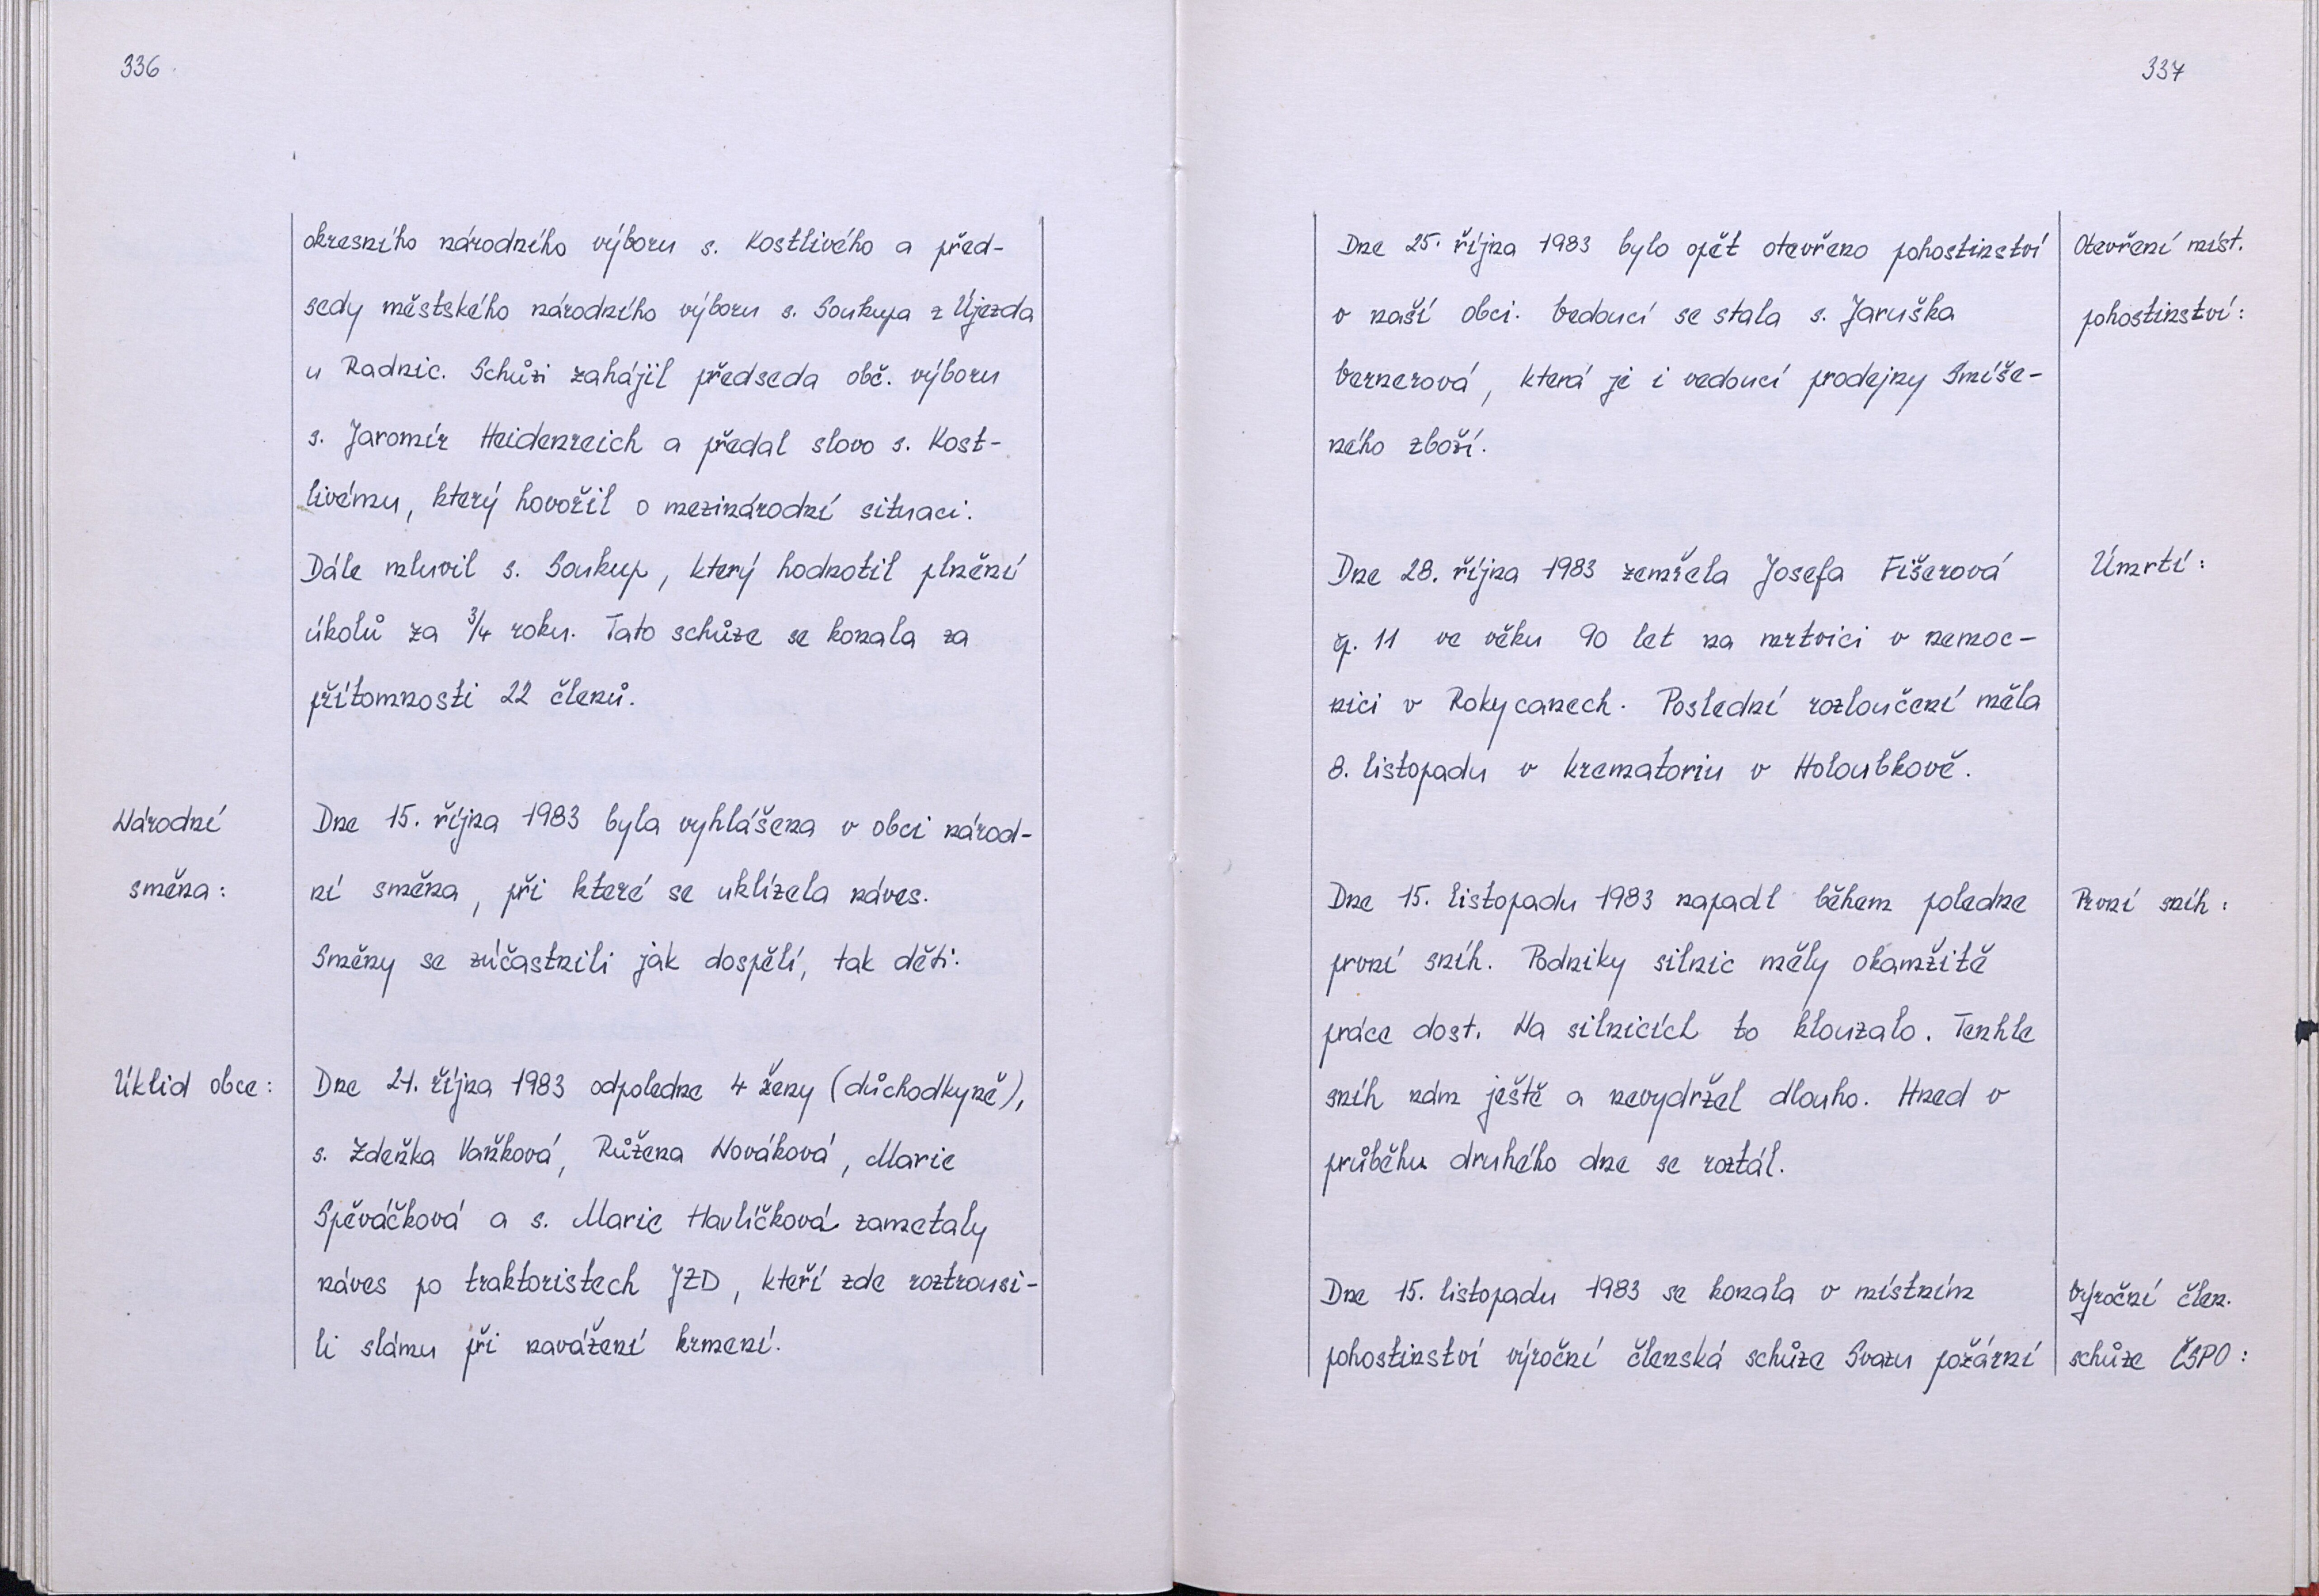 336
okresního národního výboru s. Kostlivého a před-
sedy městského národního výboru s. Soukupa z Újezda
u Radnic. Schůzi zahájil předseda obč. výboru
s. Jaromír Heidenreich a předal slovo s. Kost-
livému, který hovořil o mezinárodní situaci.
Dále mluvil s. Soukup, který hodnotil plnění
úkolů za 3/4 roku. Tato schůze se konala za
přítomnosti 22 členů.
Národní
směna:
Dne 15. října 1983 byla vyhlášena v obci národ-
ní směna, při které se uklízela náves.
Směny se zúčastnili jak dospělí, tak děti.
Úklid obce:
Dne 21. října 1983 odpoledne 4 ženy (důchodkyně),
s. Zdeňka Vaňková, Růžena Nováková, Marie
Spěváčková a s. Marie Havlíčková zametaly
náves po traktoristech JZD, kteří zde roztrousi-
li slámu při navážení krmení.
337
Dne 25. října 1983 bylo opět otevřeno pohostinství
v naší obci. Vedoucí se stala s. Jaruška
Vernerová, která je i vedoucí prodejny Smíše-
ného zboží.
Otevření míst.
pohostinství:
Dne 28. října 1983 zemřela Josefa Fišerová
čp. 11 ve věku 90 let na mrtvici v nemoc-
nici v Rokycanech. Poslední rozloučení měla
8. listopadu v krematoriu v Holoubkově.
Úmrtí:
Dne 15. listopadu 1983 napadl během poledne
první sníh. Podniky silnic měly okamžitě
práce dost. Na silnicích to klouzalo. Tenhle
sníh nám ještě a nevydržel dlouho. Hned v
průběhu druhého dne se roztál.
První sníh:
Dne 15. listopadu 1983 se konala v místním
pohostinství výroční členská schůze Svazu požární
Výroční člen.
schůze ČSPO: